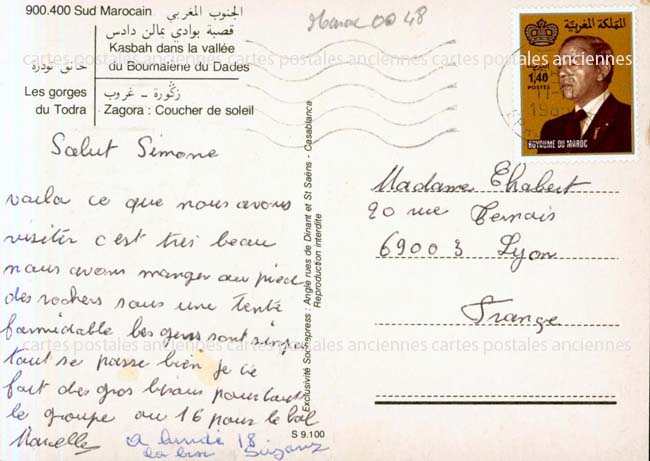 900.400 Sud Marocain الجنوب المغربي
قصبة بوادي بمالن دادس
Kasbah dans la vallée
du Boumalene du Dades
خانق تودرة
Les gorges
du Todra
زكورة - غروب
Zagora : Coucher de soleil
Maroc 00 48
المملكة المغربية
1,40
POSTES
ROYAUME DU MAROC
cartes postales anciennes cartes postales anciennes cartes postales anciennes
Salut Simone
voila ce que nous avons
visiter c'est très beau
nous avons manger au pied
des rochers sous une tente
formidable les gens sont simpa
tout se passe bien je te
fait des gros bisous pour tout
le groupe au 16 pour le bal
Marcelle a lundi 18
Suzanne
Exclusivité Sochepress : Angle rues de Dinant et St Saëns - Casablanca
Reproduction interdite
S 9.100
Madame Chabert
20 rue Ternois
69003 Lyon
France
cartes postales anciennes cartes postales anciennes cartes postales anciennes